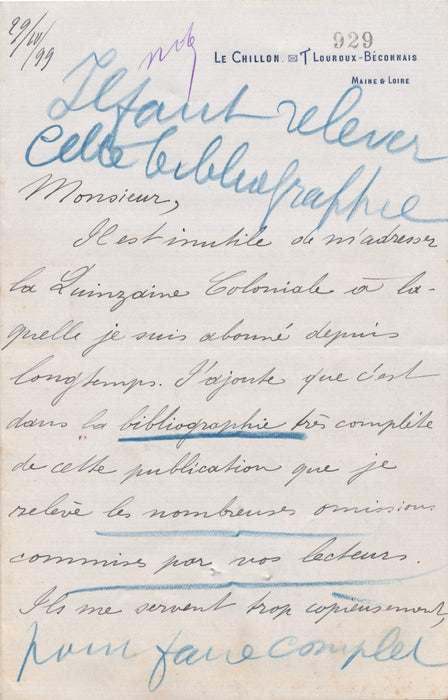 29/IV/99
929
LE CHILLON. ✉ T LOUROUX-BÉCONNAIS
MAINE & LOIRE
Il faut relever
Cette bibliographie
Monsieur,
Il est inutile de m'adresser
la Quinzaine Coloniale à la-
quelle je suis abonné depuis
longtemps. J'ajoute que c'est
dans la bibliographie très complète
de cette publication que je
relève les nombreuses omissions
commises par vos lecteurs.
Ils me servent trop copieusement,
pour faire complet